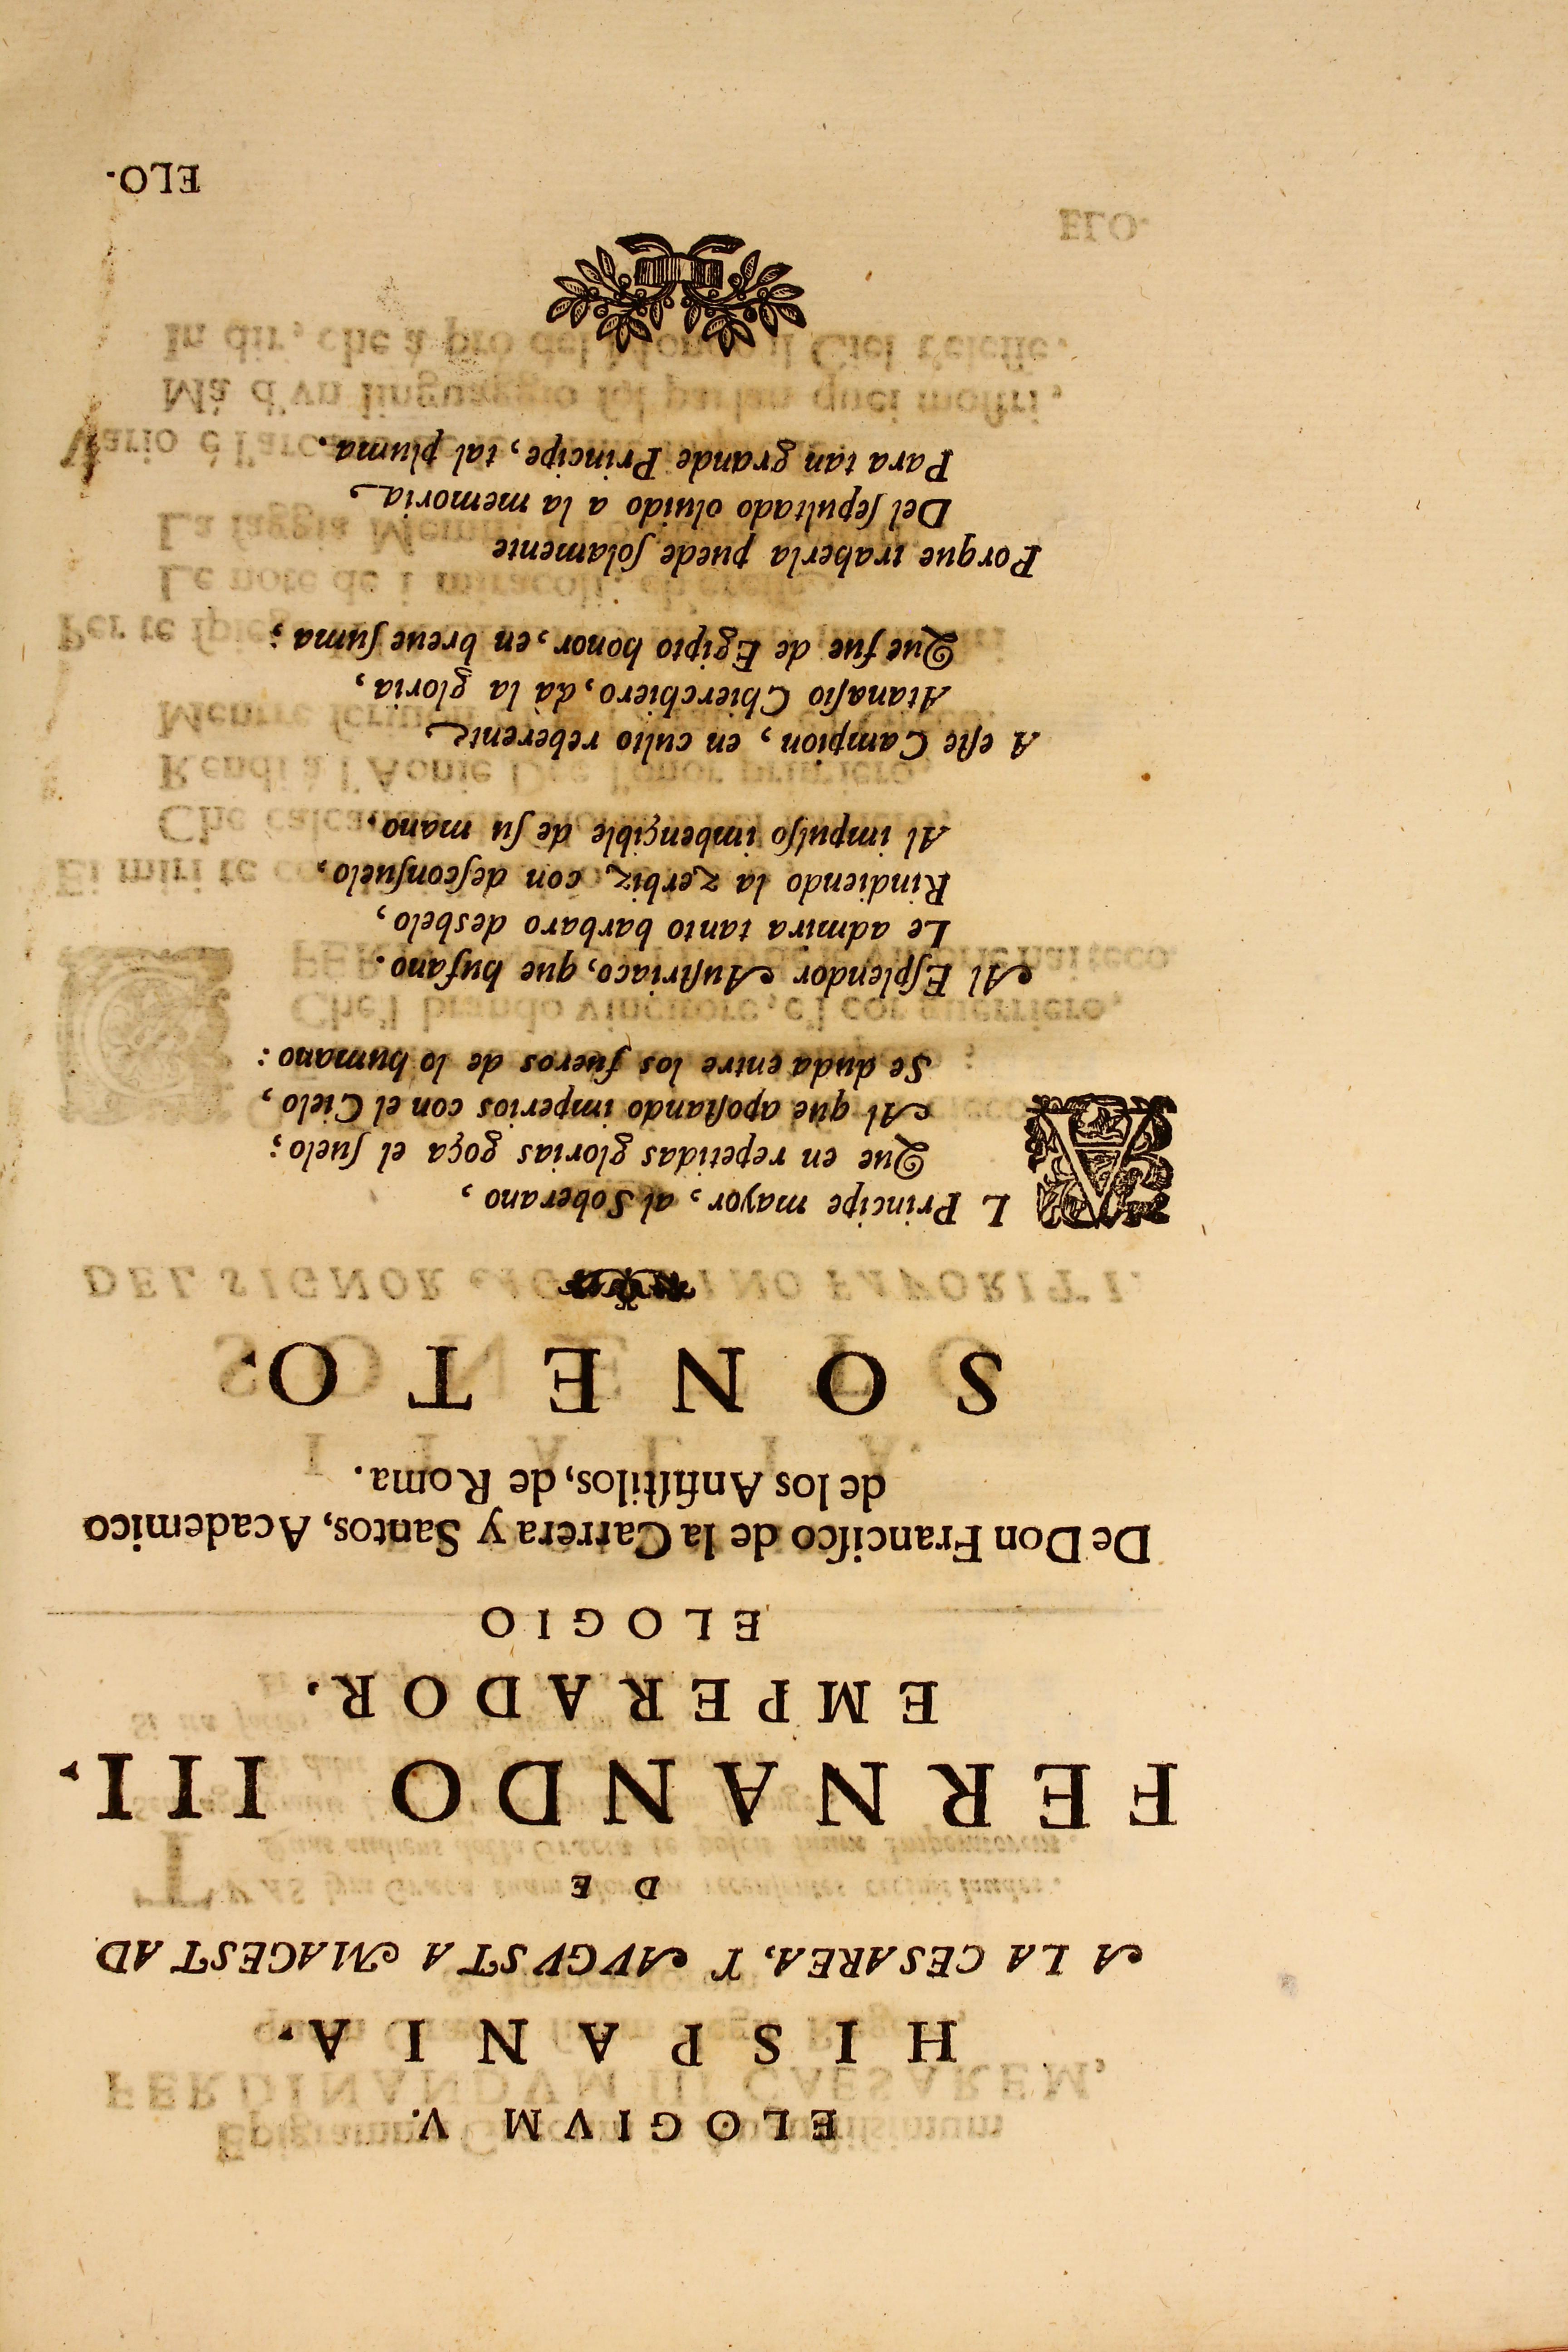 ELOGIVM V.
HISPANIA.
A LA CESAREA, Y AVGVSTA MAGESTAD
DE
FERNANDO III.
EMPERADOR.
ELOGIO
De Don Franciſco de la Carrera y Santos, Academico
de los Anfiſtilos, de Roma.
SONETO.
AL Principe mayor, al Soberano,
Que en repetidas glorias goça el ſuelo;
Al que apoſtando imperios con el Cielo,
Se duda entre los fueros de lo humano:
Al Eſplendor Auſtriaco, que hufano.
Le admira tanto barbaro desbelo,
Rindiendo la zerbiz, con deſconſuelo,
Al impulſo imbençible de ſu mano,
A eſte Campion, en culto reherente
Atanaſio Chierchiero, dà la gloria,
Que fue de Egipto honor, en breue ſuma;
Porque traherla puede ſolamente
Del ſepultado oluido a la memoria,
Para tan grande Principe, tal pluma.
ELO.